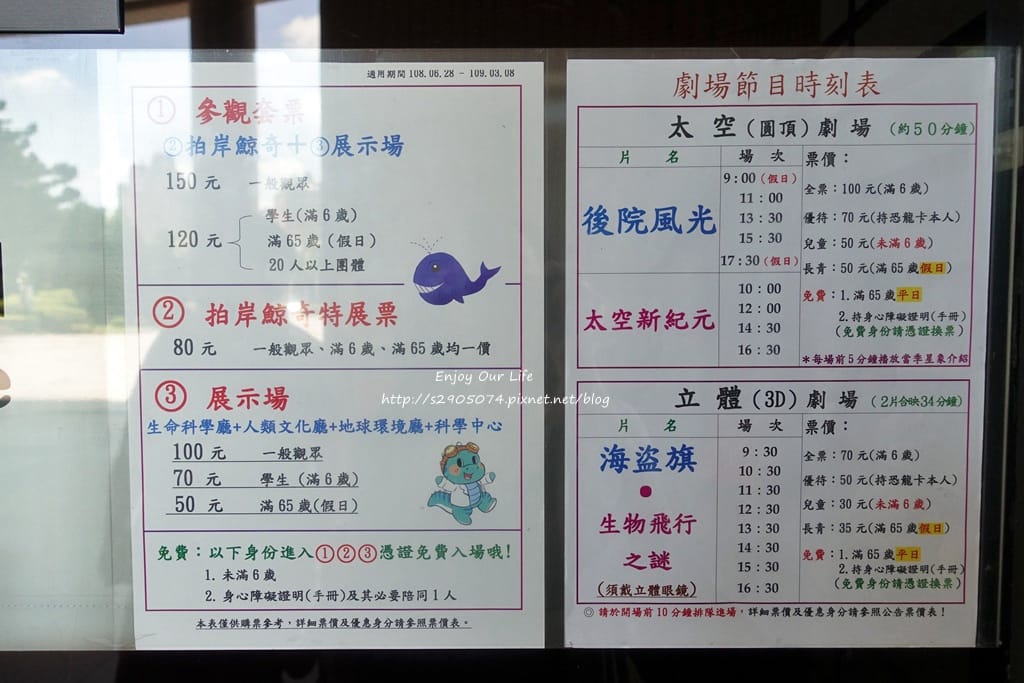 適用期間 108.06.28 - 109.03.08
① 參觀套票
②拍岸鯨奇+③展示場
150 元 一般觀眾
120 元
學生(滿6歲)
滿65歲(假日)
20人以上團體
② 拍岸鯨奇特展票
80 元 一般觀眾、滿6歲、滿65歲均一價
③ 展示場
生命科學廳+人類文化廳+地球環境廳+科學中心
100 元 一般觀眾
70 元 學生(滿6歲)
50 元 滿65歲(假日)
免費：以下身份進入①②③憑證免費入場哦!
1. 未滿6歲
2. 身心障礙證明(手冊)及其必要陪同1人
本表僅供購票參考，詳細票價及優惠身分請參照票價表。
劇場節目時刻表
太空(圓頂)劇場 (約50分鐘)
片名 場次 票價：
後院風光
9:00(假日)
11:00
13:30
15:30
17:30(假日)
太空新紀元
10:00
12:00
14:30
16:30
全票：100元(滿6歲)
優待：70元(持恐龍卡本人)
兒童：50元(未滿6歲)
長青：50元(滿65歲假日)
免費：1.滿65歲平日
2.持身心障礙證明(手冊)
(免費身份請憑證換票)
*每場前5分鐘播放當季星象介紹
立體(3D)劇場 (2片合映34分鐘)
片名 場次 票價：
海盜旗
●
生物飛行
之謎
(須戴立體眼鏡)
9:30
10:30
11:30
12:30
13:30
14:30
15:30
16:30
全票：70元(滿6歲)
優待：50元(持恐龍卡本人)
兒童：30元(未滿6歲)
長青：35元(滿65歲假日)
免費：1.滿65歲平日
2.持身心障礙證明(手冊)
(免費身份請憑證換票)
◎請於開場前10分鐘排隊進場，詳細票價及優惠身分請參照公告票價表!
Enjoy Our Life
http://s2905074.pixnet.net/blog